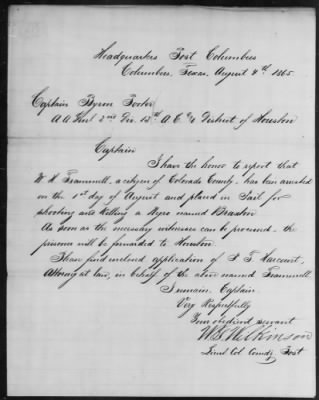 Headquarters Post Columbus
Columbus, Texas. August 4th 1865
Captain Byron Porter
A A Genl 2nd Div. 13th A.C. & District of Houston
Captain
I have the honor to report that
W. H. Trammell, a citizen of Colorado County, has been arrested
on the 1st day of August and placed in Jail for
shooting and killing a Negro named Braxton
As soon as the necessary witnesses can be procured, the
prisoner will be forwarded to Houston.
Please find inclosed application of Harcourt,
Attorney at law, in behalf of the above named Trammell.
I remain Captain
Very Respectfully
Your obedient servant
W. S. Wilkinson
Lieut Col Comdg Post